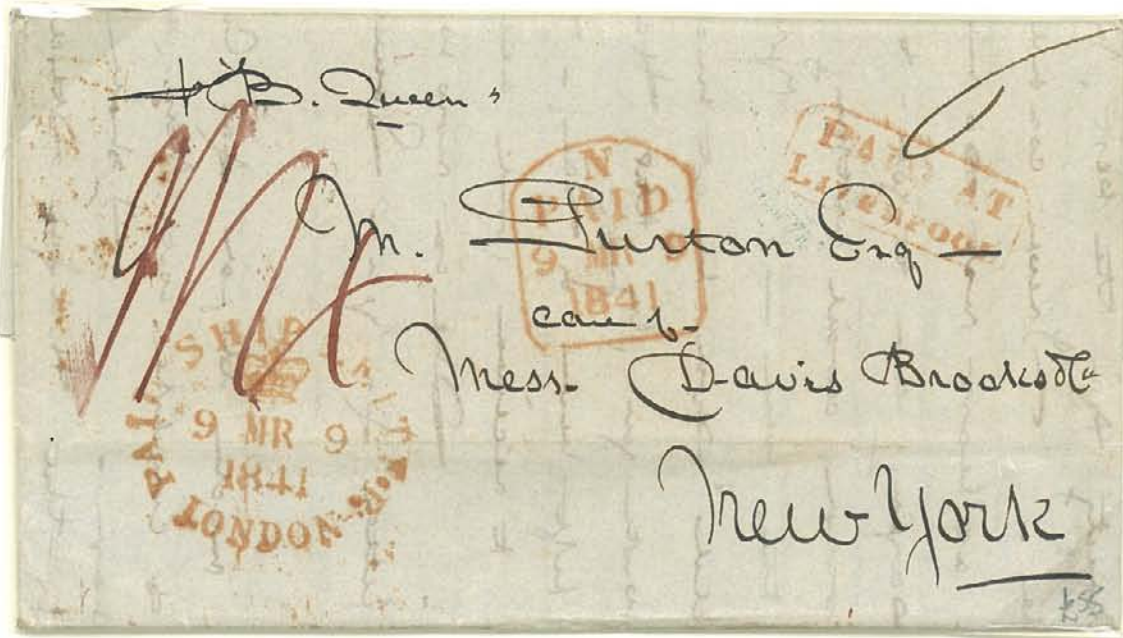 B. Queen"
PAID AT
Liverpool
N
PAID
9 MR 9
1841
M. Gurton Esq
care of
Mess. Davis Brooks & Co
New York
PAID SHIP LETTER
9 MR 9
1841
LONDON